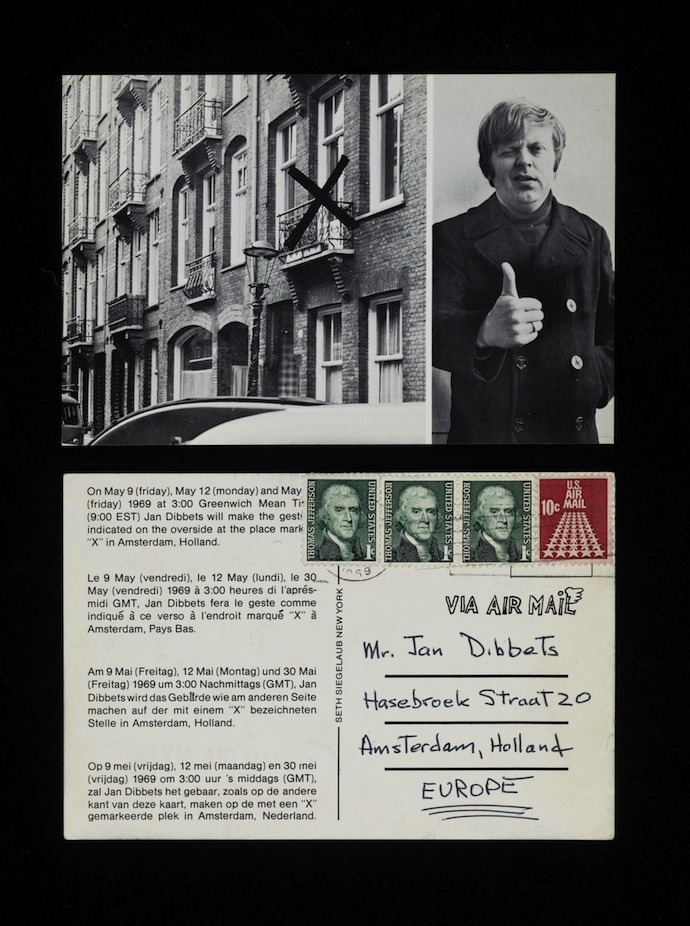 On May 9 (friday), May 12 (monday) and May
(friday) 1969 at 3:00 Greenwich Mean
(9:00 EST) Jan Dibbets will make the
indicated on the overside at the place
"X" in Amsterdam, Holland.
Le 9 May (vendredi), le 12 May (lundi), le 30
May (vendredi) 1969 à 3:00 heures di l'aprés-
midi GMT, Jan Dibbets fera le geste comme
indiqué à ce verso à l'endroit marqué "X" à
Amsterdam, Pays Bas.
Am 9 Mai (Freitag), 12 Mai (Montag) und 30 Mai
(Freitag) 1969 um 3:00 Nachmittags (GMT), Jan
Dibbets wird das Gebärde wie am anderen Seite
machen auf der mit einem "X" bezeichneten
Stelle in Amsterdam, Holland.
Op 9 mei (vrijdag), 12 mei (maandag) en 30 mei
(vrijdag) 1969 om 3:00 uur 's middags (GMT),
zal Jan Dibbets het gebaar, zoals op de andere
kant van deze kaart, maken op de met een "X"
gemarkeerde plek in Amsterdam, Nederland.
SETH SIEGELAUB NEW YORK
THOMAS JEFFERSON
UNITED STATES
1c
THOMAS JEFFERSON
UNITED STATES
1c
THOMAS JEFFERSON
UNITED STATES
1c
U.S.
10c AIR
MAIL
1969
VIA AIR MAIL
Mr. Jan Dibbets
Hasebroek Straat 20
Amsterdam, Holland
EUROPE